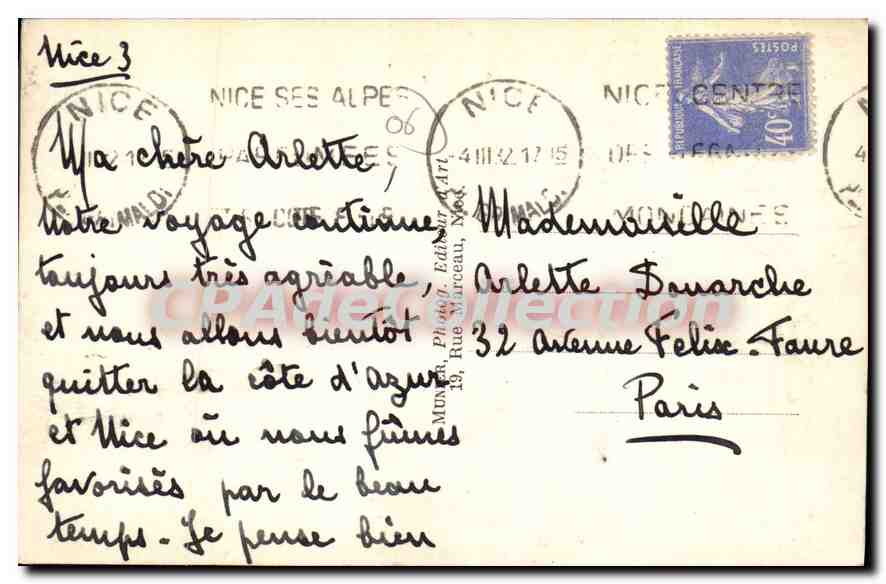 Nice 3
Ma chère Arlette,
Notre voyage continue,
toujours très agréable,
et nous allons bientôt
quitter la côte d'Azur
et Nice où nous fûmes
favorisés par le beau
temps. Je pense bien
Mademoiselle
Arlette Douarche
32 avenue Felix-Faure
Paris
MUNIER, Photog. Editeur d'Art
19, Rue Marceau, Nice.
NICE SES ALPES
06
NICE
R. GRIMALDI
NICE
4 III 32 17 15
R. GRIMALDI
NICE CENTRE
MONDAINES
POSTES
REPUBLIQUE FRANÇAISE
40c
CPArteCollection